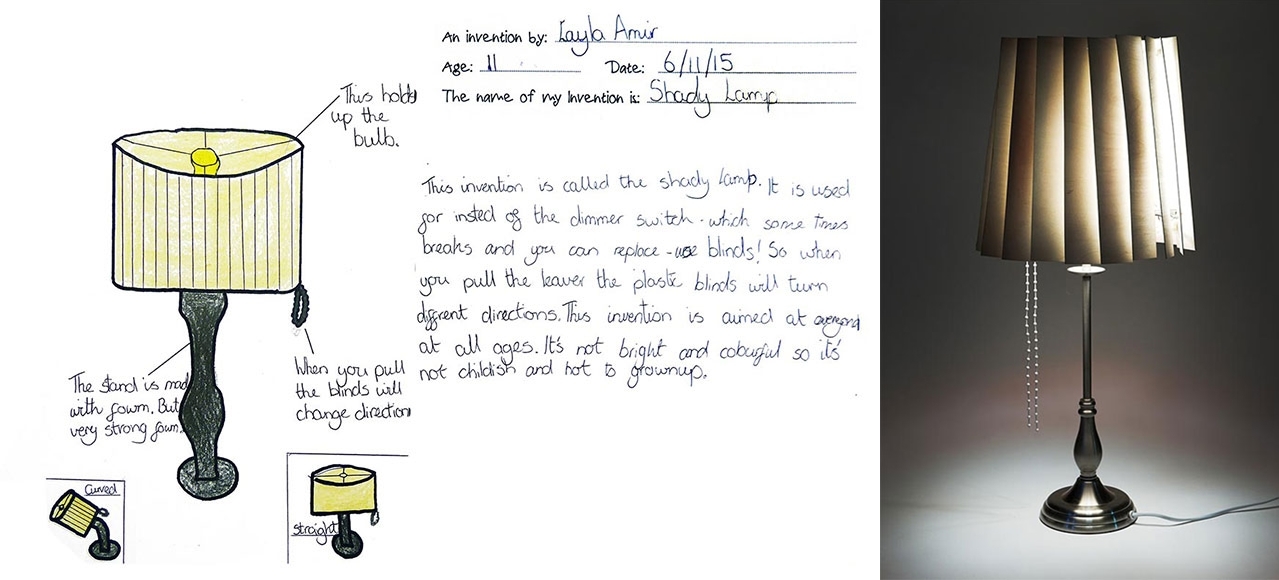 An invention by: Layla Amir
Age: 11 Date: 6/11/15
The name of my Invention is: Shady Lamp
This holds
up the
bulb.
This invention is called the shady lamp. It is used
for insted of the dimmer switch - which some times
breaks and you can replace - use blinds! So when
you pull the leaver the plastic blinds will turn
diffrent directions. This invention is aimed at everyone
at all ages. It's not bright and colourful so it's
not childish and not to grownup.
The stand is mad
with fowm. But
very strong fowm.
When you pull
the blinds will
change direction
Curved
Straight